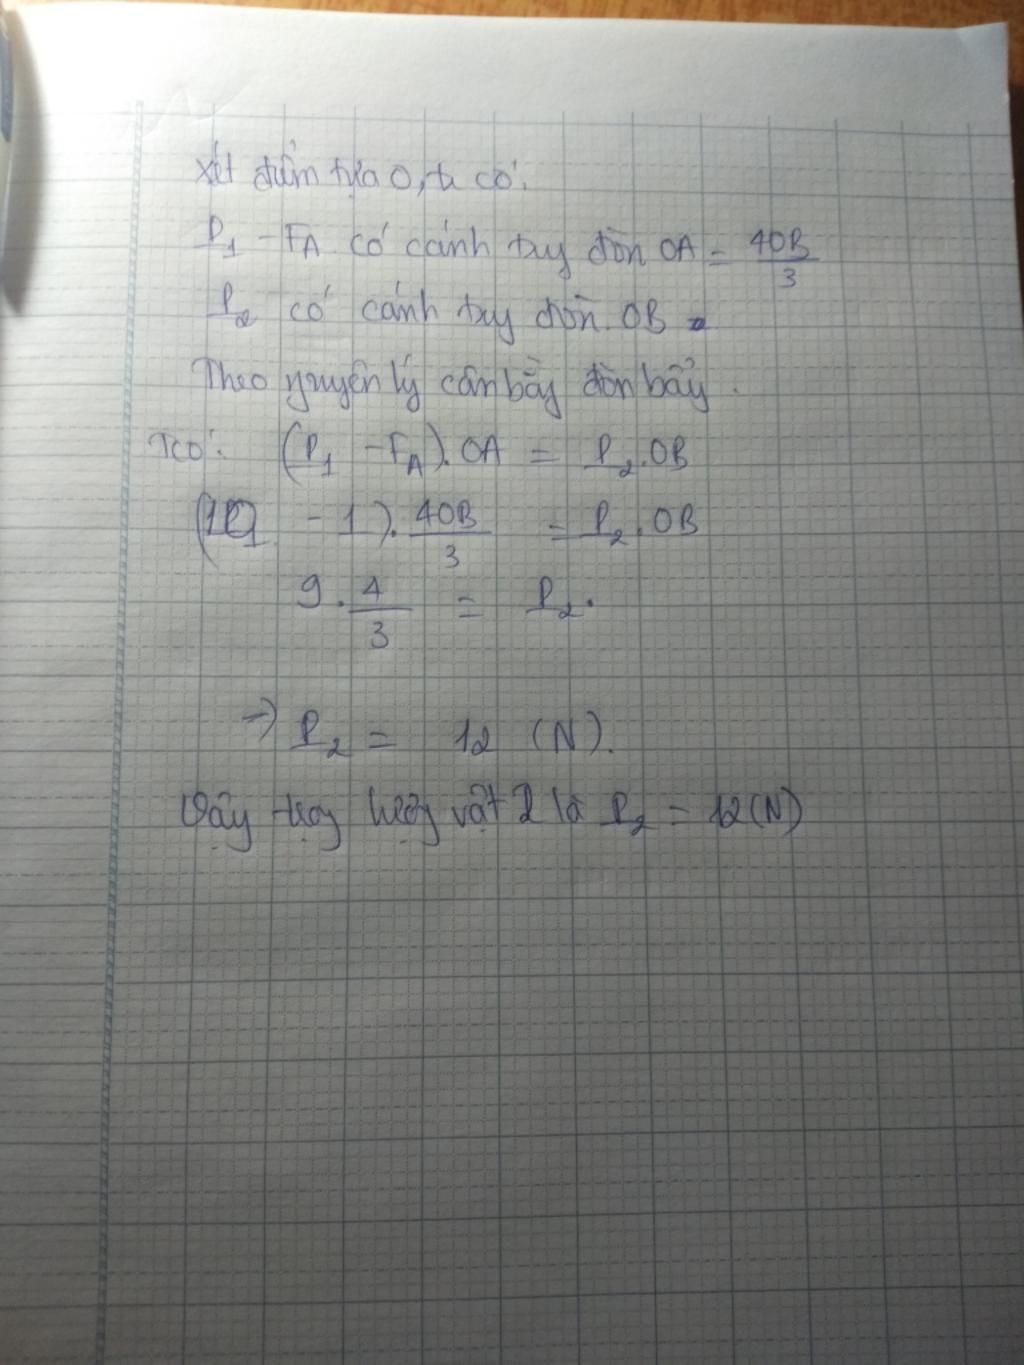 Xét điểm tựa O, ta có:
P₁ - FA có cánh tay đòn OA = 4OB/3
P₂ có cánh tay đòn OB
Theo nguyên lý cân bằng đòn bẩy.
Tcó: (P₁ - FA).OA = P₂.OB
(10 - 1).4OB/3 = P₂.OB
9.4/3 = P₂.
→ P₂ = 12 (N).
Vậy trọng lượng vật 2 là P₂ = 12(N)